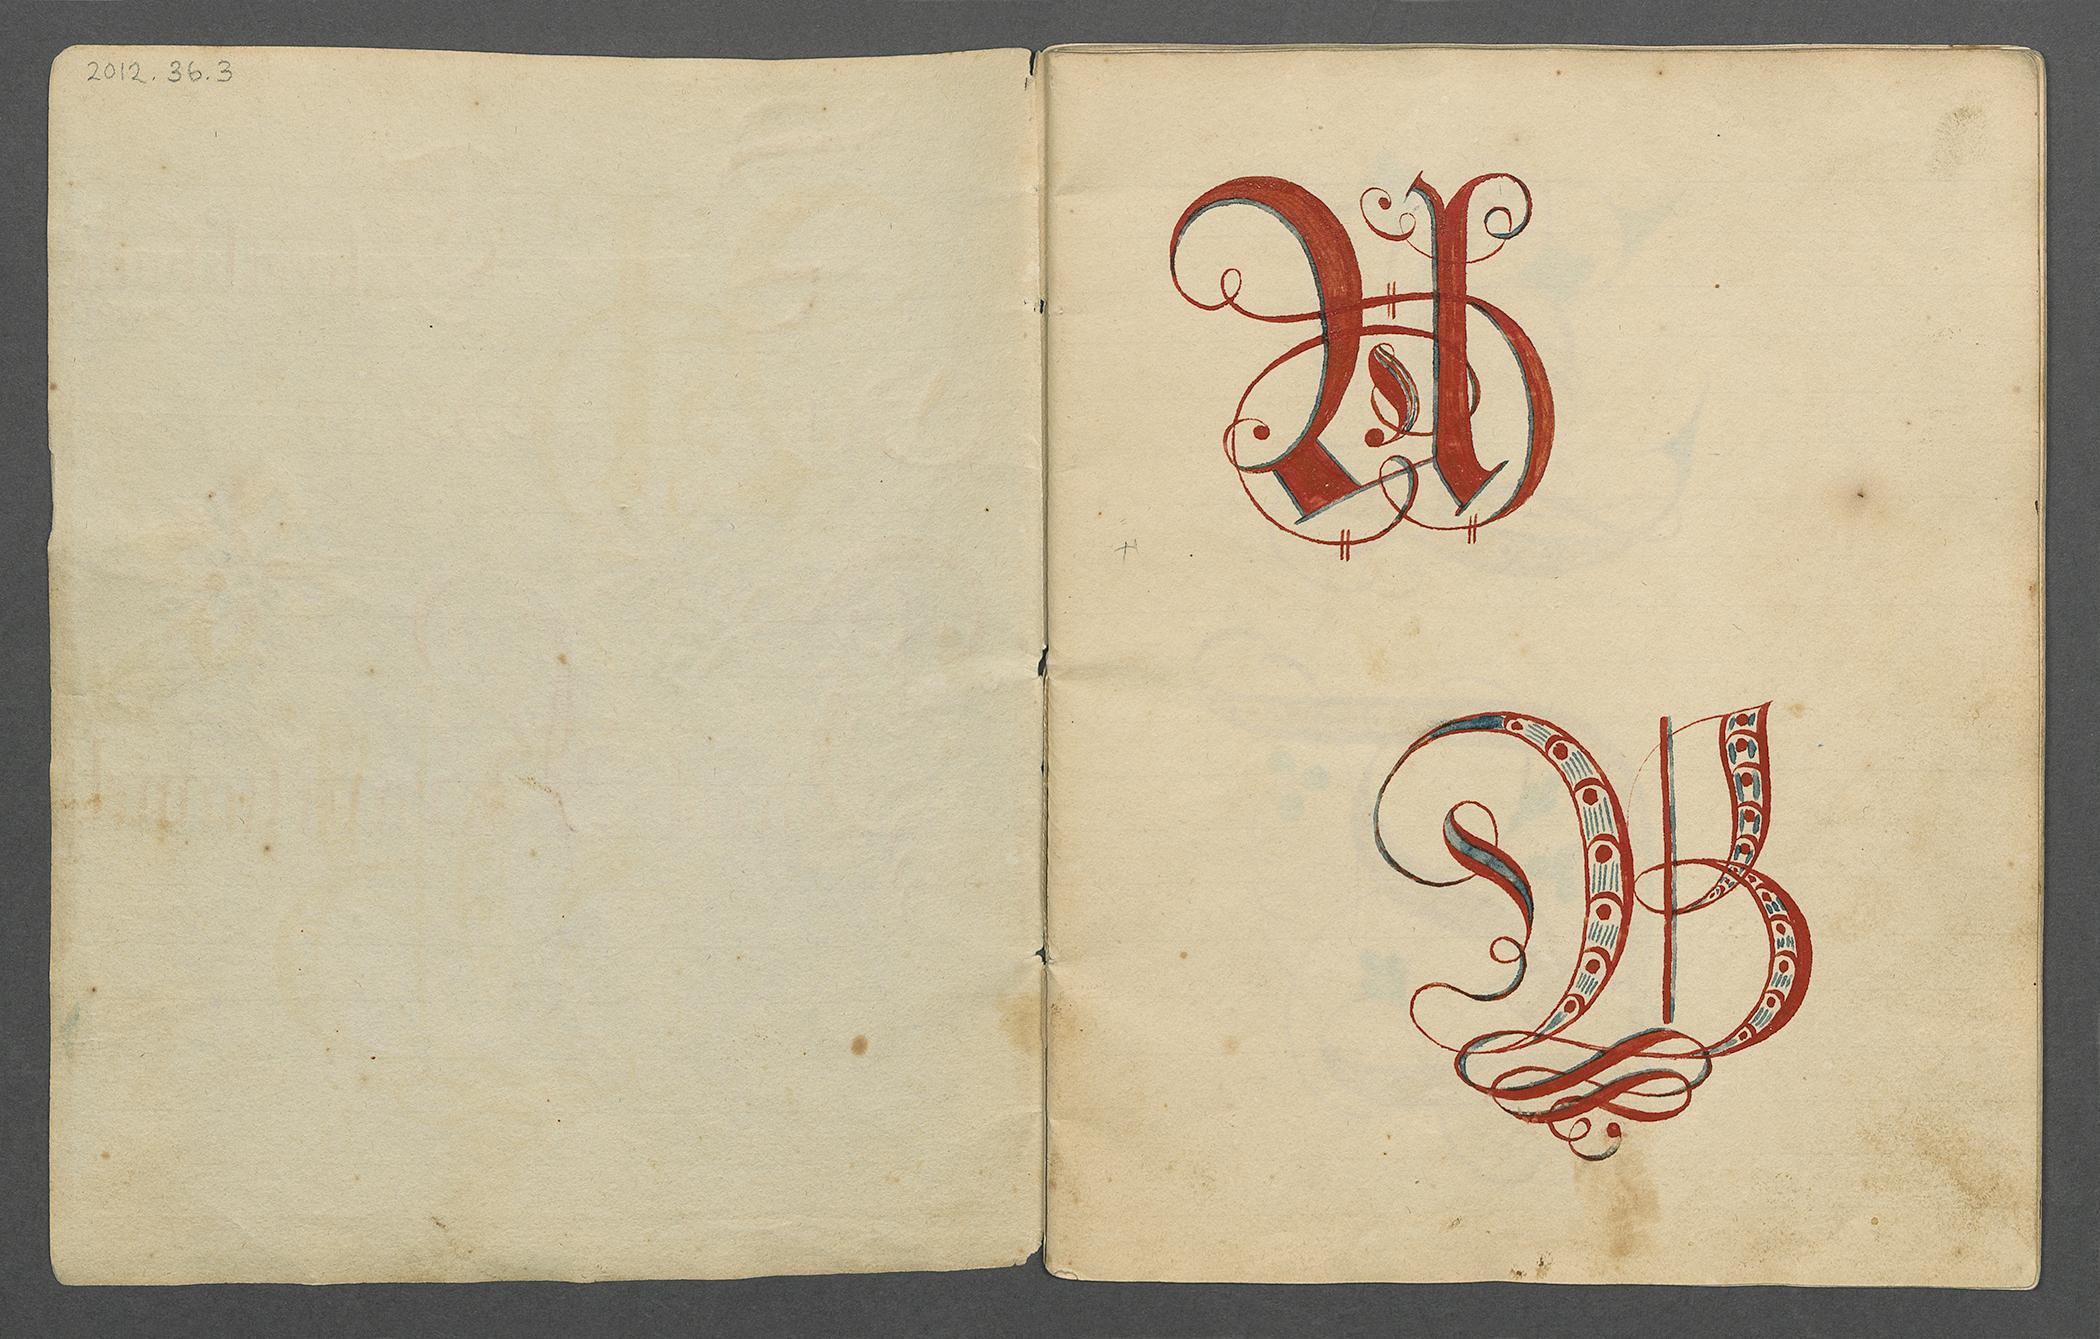 2012.36.3
A
B